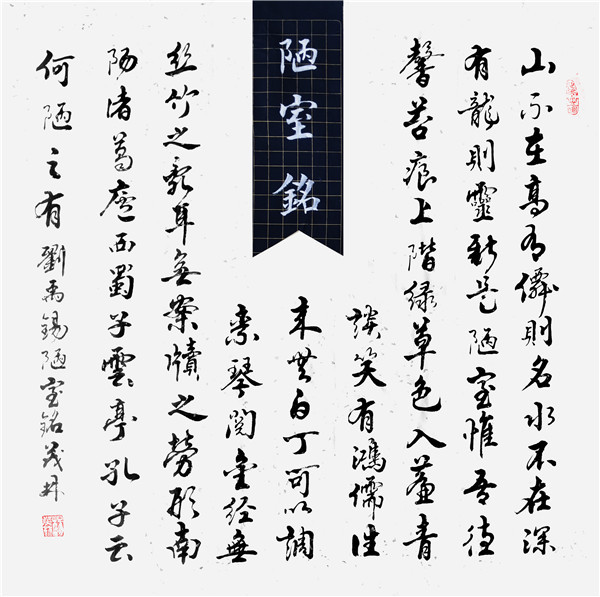 陋室銘
山不在高有僊則名水不在深
有龍則靈斯是陋室惟吾德
馨苔痕上階綠草色入簾青
談笑有鴻儒往
來無白丁可以調
素琴閱金經無
絲竹之亂耳無案牘之勞形南
陽諸葛廬西蜀子雲亭孔子云
何陋之有 劉禹錫陋室銘